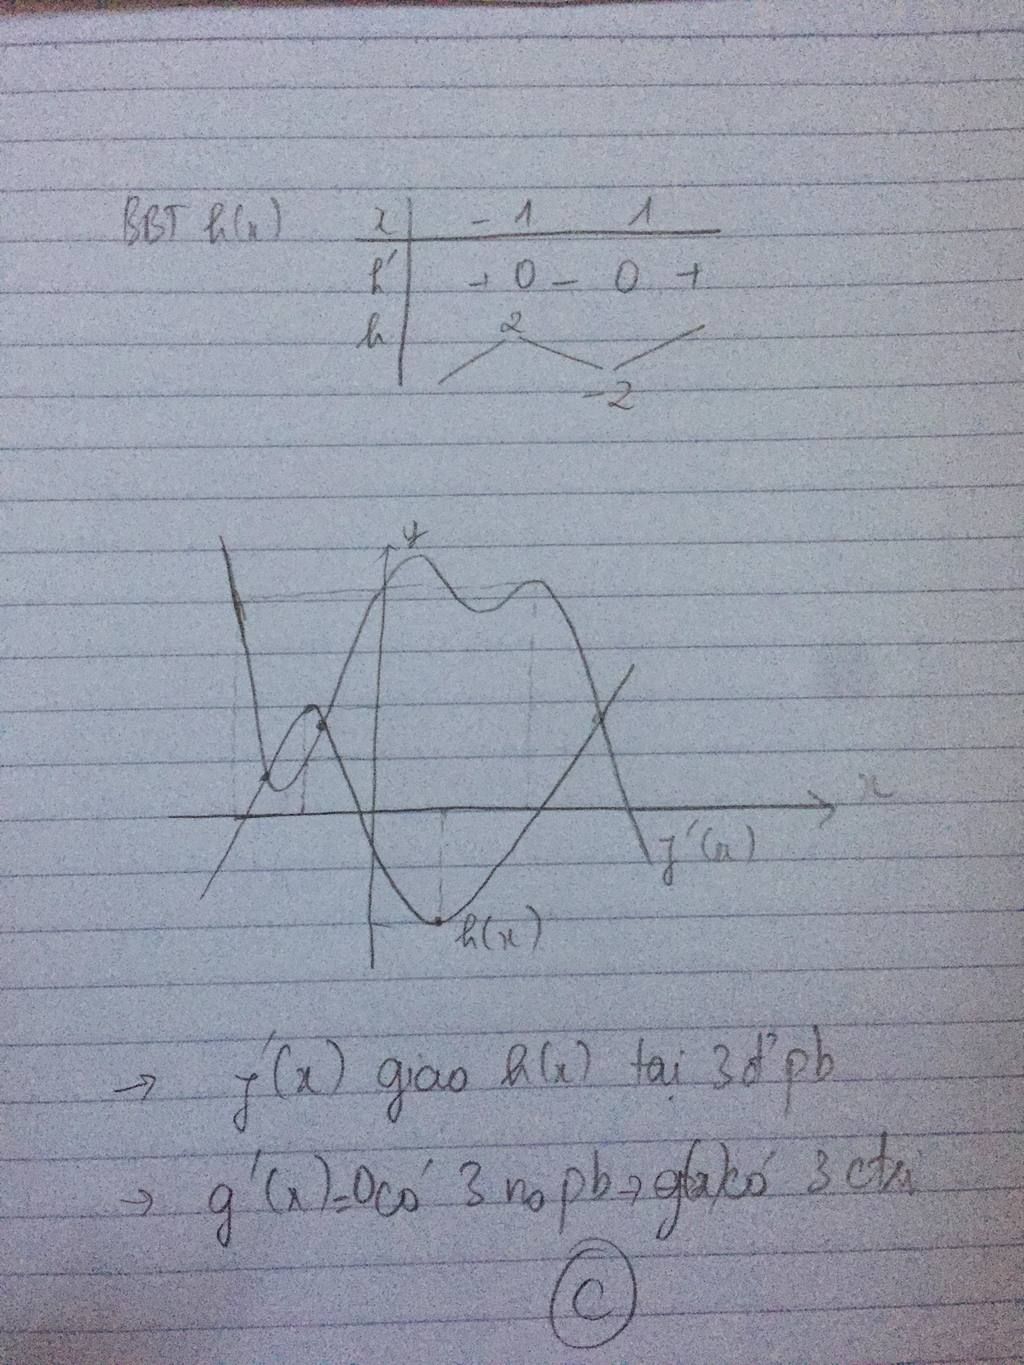 BBT h(x) x -1 1
h' + 0 - 0 +
h 2
-2
y
x
f'(x)
h(x)
→ f'(x) giao h(x) tại 3 đ' pb
→ g'(x)=0 có 3 no pb → g(x) có 3 ctrị
C